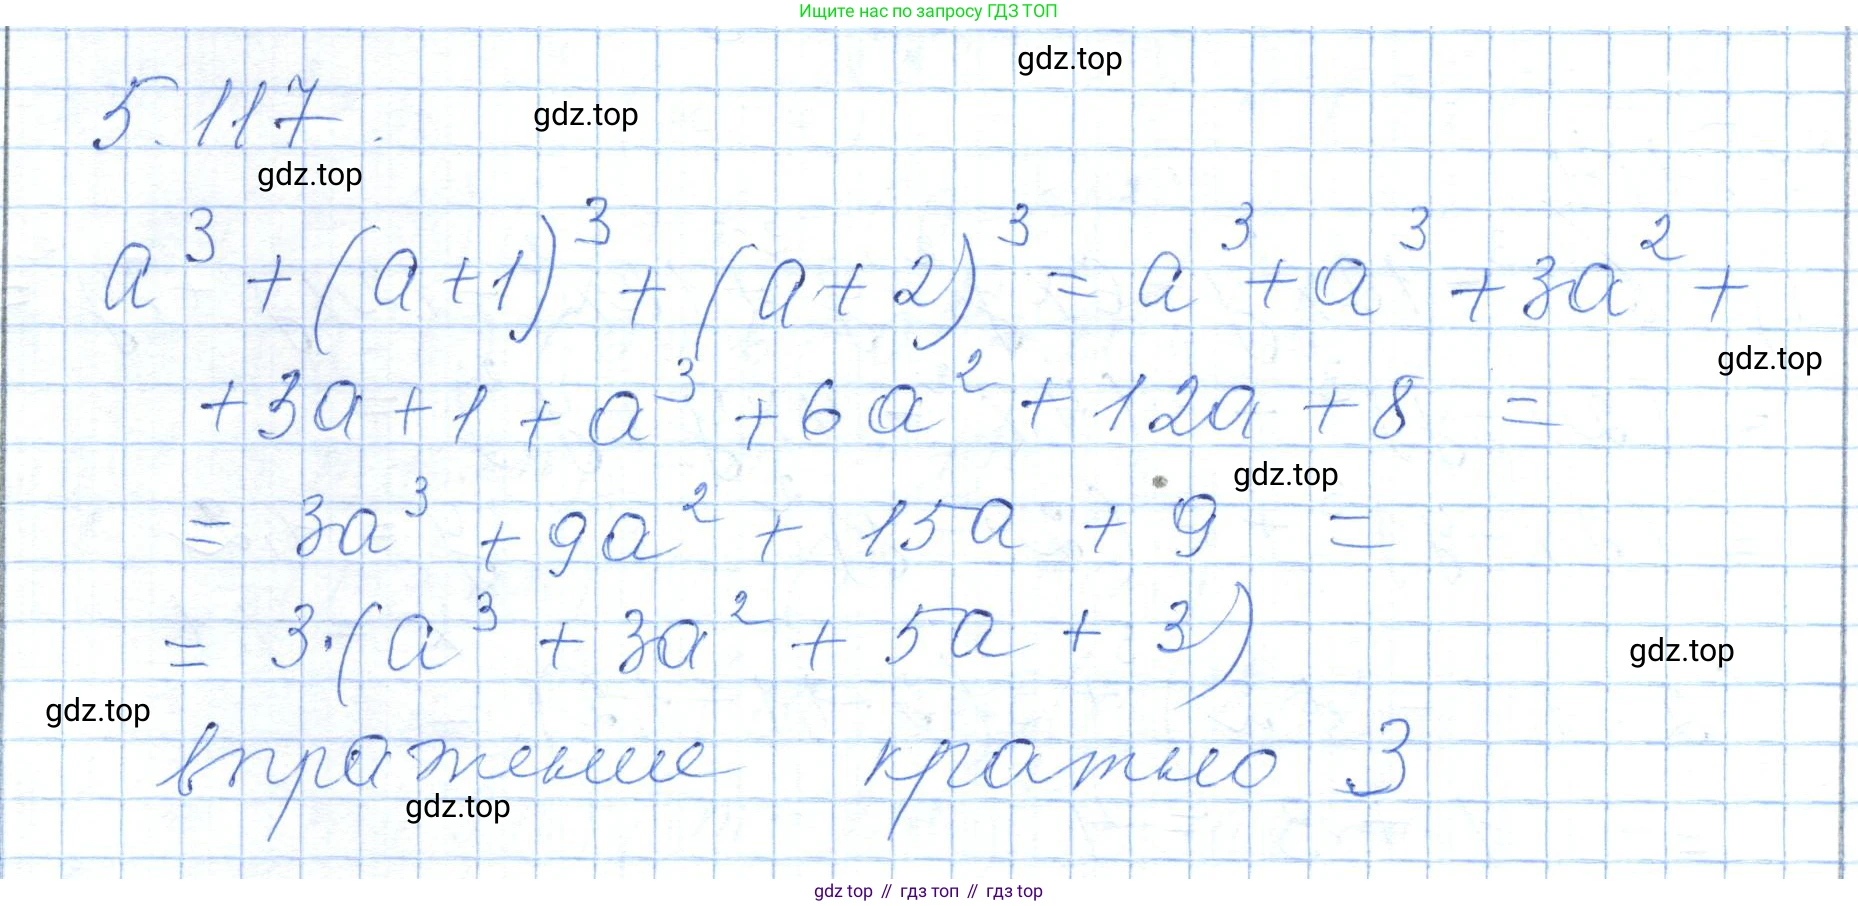 Ищите нас по запросу ГДЗ ТОП
gdz.top
5.117.
gdz.top
gdz.top
a³ + (a+1)³ + (a+2)³ = a³ + a³ + 3a² +
gdz.top
+ 3a + 1 + a³ + 6a² + 12a + 8 =
gdz.top
= 3a³ + 9a² + 15a + 9 =
= 3·(a³ + 3a² + 5a + 3)
gdz.top
gdz.top
впражение кратно 3
gdz.top
gdz top // гдз топ // гдз top